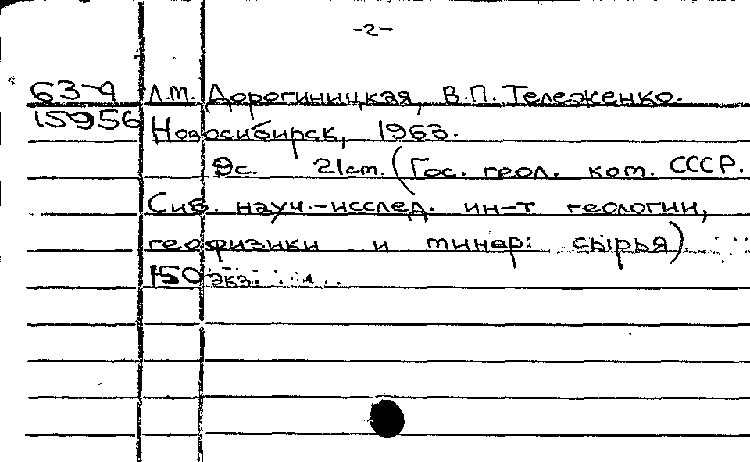 -2-
63-4 Л.М. Дорогиницкая, В.П. Тележенко.
15956 Новосибирск, 1963.
9с. 21см. (Гос. геол. ком. СССР.
Сиб. науч.-исслед. ин-т геологии,
геофизики и минер. сырья)
150 экз.